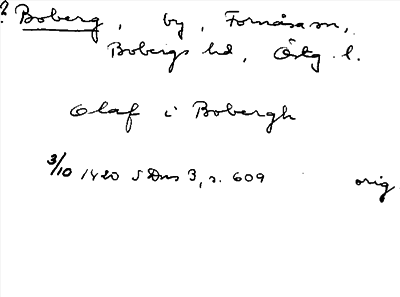 ? Boberg, by, Fornåsa sn,
Bobergs hd, Östg. l.
Olaf i Bobergh
3/10 1420 SDns 3, s. 609 orig